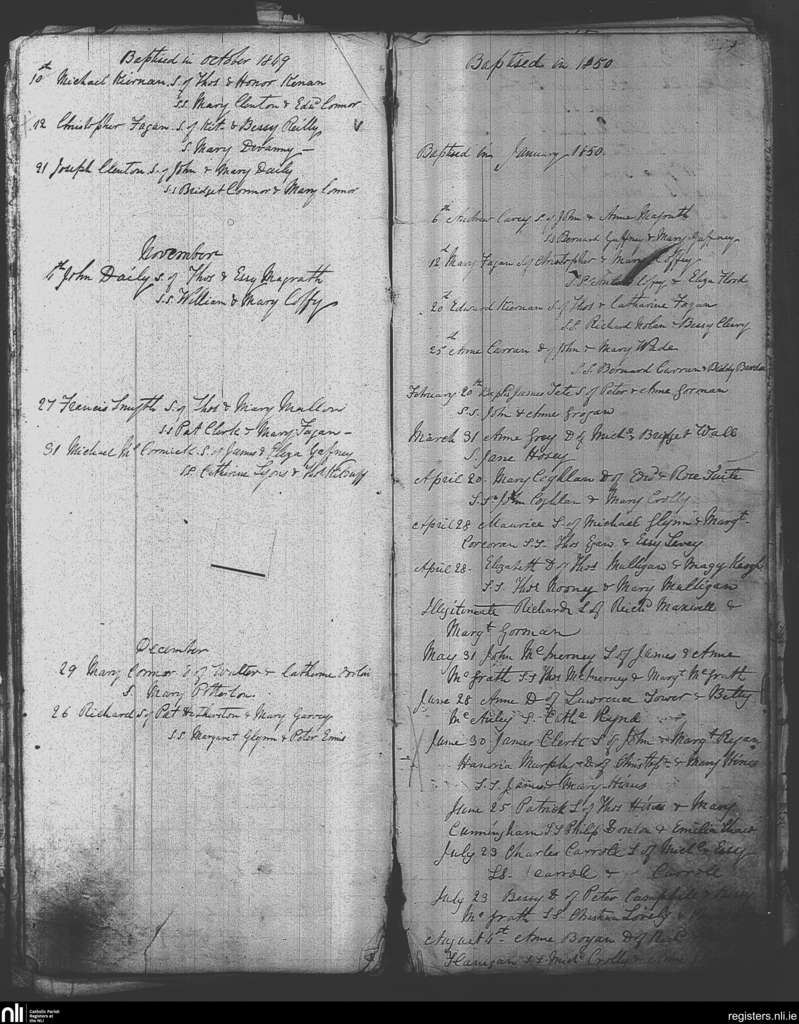 Baptised in October 1849
10th Michael Kiernan S. of Thos & Honor Kenan
S.S. Mary Clenton & Edwd Connor
12 Christopher Fagan S. of Kit. & Bessy Reilly
S. Mary
21 Joseph Clenton S. of John & Mary Daily
S.S Bridget Connor & Mary Connor
November
John Daily S. of Thos & Essy Magrath
S.S. William & Mary Coffy
27 Francis Smyth S. of Thos & Mary Mullon
S.S Pat Clerk & Mary Fagan
31 Michael McCormick S. of James & Eliza Gafney
S.S. Catherine Lyons & Thos
December
29 Mary Connor D of Walter & Catherine
S. Mary Potterton
26 Richard S of Pat & Mary Garvey
S.S. Margaret Glynn & Peter Ennis
Baptised in 1850
Baptised in January 1850
6th Andrew Carey S. of John & Anne Magrath
S.S Bernard Gaffney & Mary Gaffney
12th Mary Fagan of Christopher & Mary Coffey
S.S. & Eliza
20th Edward Kiernan S. of Thos & Catharine Fagan
S.S. Richard Nolan & Bessy Cleary
25th Anne Curran D of John & Mary Wade
S.S. Bernard Curran & Biddy
February 20th Baptd James S of Peter & Anne Gorman
S.S. John & Anne Grogan
March 31 Anne Grey D of Michl Bridget Wall
S. Jane Hosey
April 20 Mary Coghlan D of Edwd & Rose Tuite
S.S. John Coghlan & Mary Crolly
April 28 Maurice S. of Michael Glynn & Margt
Corcoran S.S. Thos & Essy
April 28 Elizabeth D of Thos Mulligan & Magy Keogh
S.S. Thos Rooney & Mary Mulligan
Illegitimate Richard S. of Richd Maxwell &
Margt Gorman
May 31 John McInerney S of James & Anne
McGrath S.S Thos McInerney & Margt McGrath
June 28 Anne D of Lawrence & Betty
S. Cathe
June 30 James Clerk S of John & Margt Ryan
Hanoria Murphy D of & Mary Hines
S.S. James & Mary Hines
June 25 Patrick S of Thos & Mary
Cunningham S.S Philip & Emilia
July 23 Charles Carroll S of Michl Essy
S.S. Carroll & Carroll
July 23 Bessy D of Peter Campbell &
McGrath S.S. Christian &
August Anne Bogan D of
Flanigan S.S Michl Crolly & Anne
nli
Catholic Parish
Registers at
the NLI
registers.nli.ie